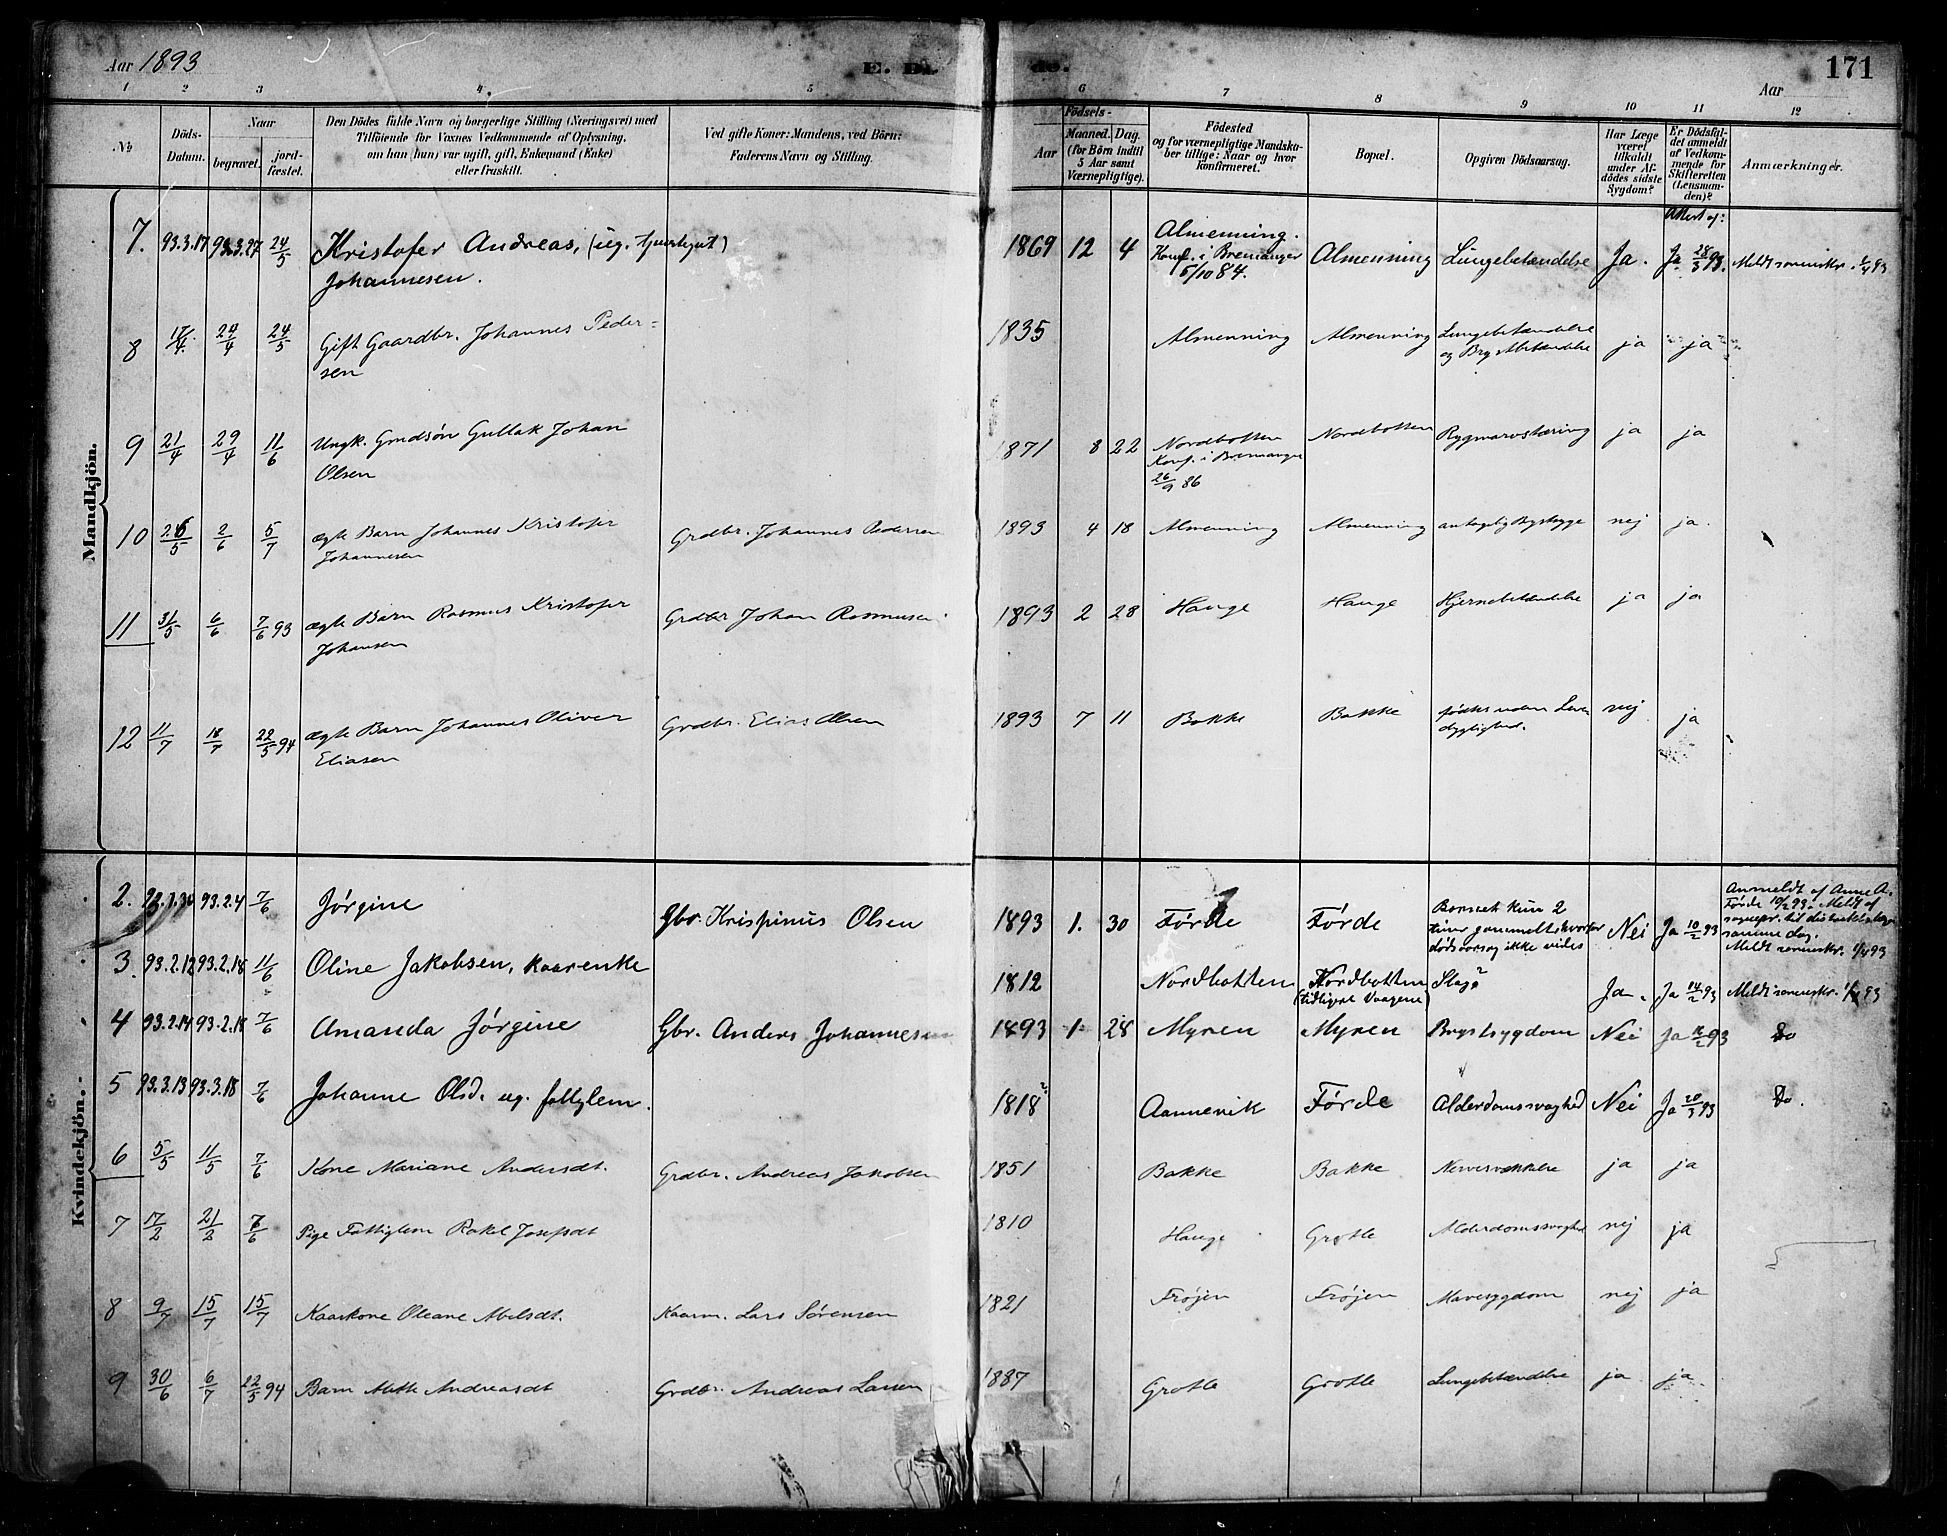 Aar 1893
E. Dö
de.
Aar
171
1 2 3 4. 5 6 7 8 9 10 11 12
No
Döds-Datum.
Naar
begravet.
jord-fæstet.
Den Dödes fulde Navn og borgerlige Stilling (Næringsvei) med
Tilföiende for Voxnes Vedkommende af Oplysning,
om han (hun) var ugift, gift, Enkemand (Enke)
eller fraskilt.
Ved gifte Koner: Mandens, ved Börn:
Faderens Navn og Stilling.
Födsels-
Aar
Maaned. Dag.
(for Börn indtil
5 Aar samt
Værnepligtige).
Födested
og for værnepligtige Mandska-
ber tillige: Naar og hvor
konfirmeret.
Bopæl.
Opgiven Dödsaarsag.
Har Læge
været
tilkaldt
under Af-
dödes sidste
Sygdom?
Er Dödsfal-
det anmeldt
af Vedkom-
mende for
Skifteretten
(Lensman-
den)?
Anmærkninger.
Mandkjön.
7. 93.3.17 93.3.27 24/5 Kristofer Andreas, (ug. tjenstgut)
Johannesen.
1869 12 4 Almenning.
Konf. i Bremanger
5/10 84.
Almenning Lungebetændelse Ja. Attest af:
Ja 28/3 93. Meldt sorenskr. 6/4 93
8 17/4 24/4 24/5 Gift Gaardbr. Johannes Peder=
sen
1835 Almenning Almenning Lungebetændelse
og Brystbetændelse ja ja
9 21/4 29/4 11/6 Ungk. Grudsøn Gullak Johan
Olsen
1871 8 22 Nordbotten
Konf. i Bremanger
26/9 86
Nordbotten Rygmarvstæring ja ja
10 26/5 2/6 5/7 ægte Barn Johannes Kristofer
Johannesen
Grdbr. Johannes Pedersen
1893 4 18 Almenning Almenning antagelig Brystsyge nej ja.
11 31/5 6/6 7/6 93 ægte Barn Rasmus Kristofer
Johansen
Grdbr Johan Rasmusen
1893 2 28 Hauge Hauge Hjernebetændelse ja ja
12 11/7 18/7 22/5 94 ægte Barn Johannes Oliver
Eliasen
Grdbr. Elias Olsen
1893 7 11 Bakke Bakke fødtes uden Leve
dygtighed. nej ja
Kvindekjön.
2. 93.1.30 93.2.4 7/6 Jørgine
Gbr. Krispinus Olsen
1893 1. 30 Førde Førde Barnet kun 2
timer gammelt, hvorfor
dødsaarsag ikke vides
Nei Ja 10/2 93
Anmeldt af Anne A.
Førde 10/2 93. Meldt af
sognepr. til distriktslæge
samme dag.
Meldt sorenskr. 1/4 93
3. 93.2.12 93.2.18 11/6 Oline Jakobsen, kaarenke
1812 Nordbotten Nordbotten
(tidligere Vaagene) Slag? Ja. Ja 14/2 93 Meldt sorenskr. 1/4 93
4 93.2.14 93.2.18 7/6 Amanda Jørgine
Gbr. Anders Johannesen
1893 1. 28 Myren Myren Brystsygdom Nei Ja 16/2 93 Do
5 93.3.13 93.3.18 7/6 Johanne Olsd. ug. fattiglem.
1818? Aannevik Førde Alderdomssvaghed Nei Ja 20/3 93 Do.
6 5/5 11/5 7/6 Kone Mariane Andersdt.
Grdbr. Andreas Jakobsen
1851 Bakke Bakke Nervesvækkelse ja ja
7 17/2 21/2 7/6 Pige Fattiglem Rakel Josefsdt
1810 Hauge Grotle Alderdomssvaghed nej ja
8 9/7 15/7 15/7 Kaarkone Oleane Abelsdt.
Kaarm. Lars Sørensen
1821 Frøjen Frøjen Mavesygdom nej ja
9 30/6 6/7 22/5 94 Barn Mette Andreasdt
Grdbr. Andreas Larsen
1887 Grotle Grotle Lungebetændelse ja ja.